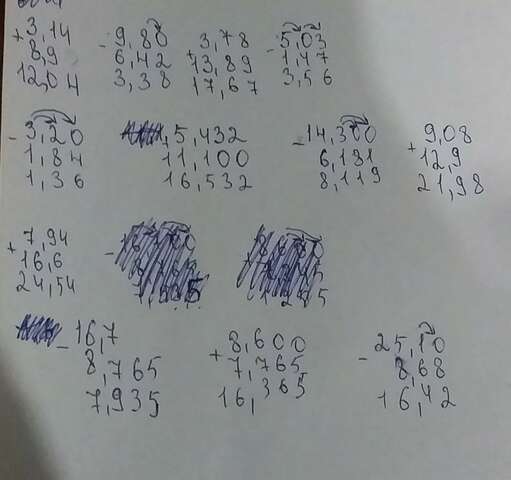 +3,14 -9,80 3,78 -5,03
8,9 6,42 +13,89 1,47
12,04 3,38 17,67 3,56
-3,20 5,432 -14,300 9,08
1,84 11,100 6,181 +12,9
1,36 16,532 8,119 21,98
+7,94
16,6
24,54
-16,7 +8,600 -25,10
8,765 7,765 8,68
7,935 16,365 16,42